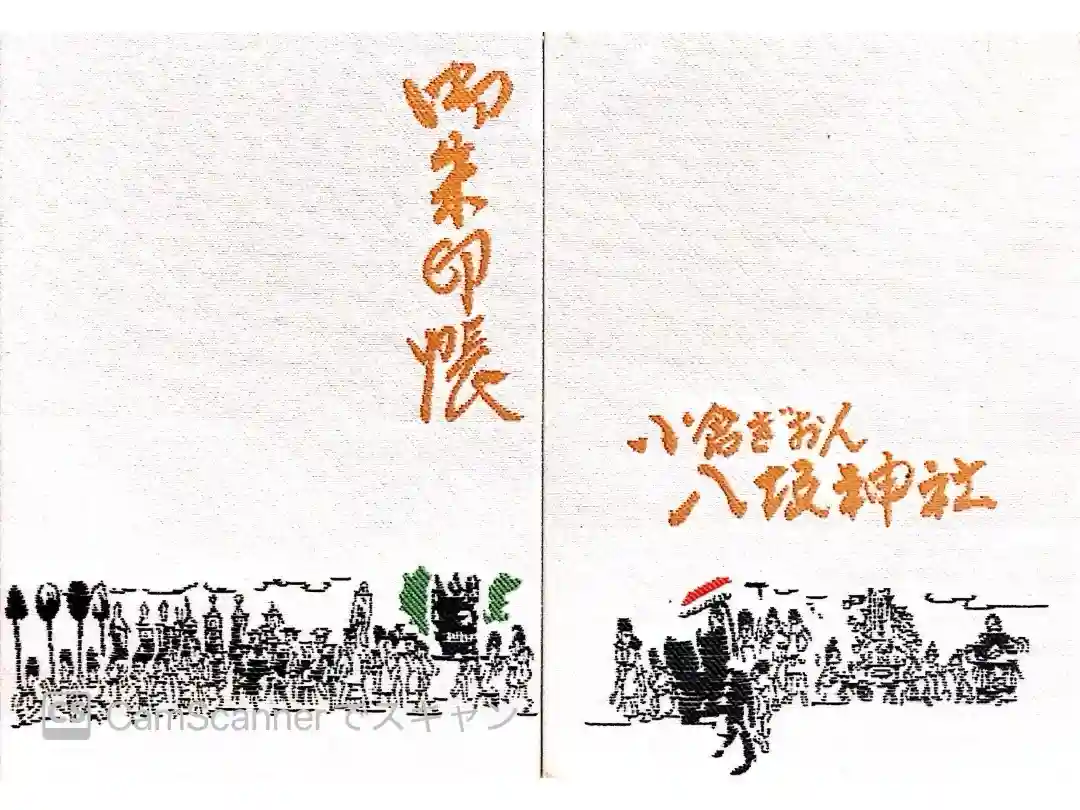 御朱印帳
小倉ぎおん
八坂神社
CS CamScanner でスキャン